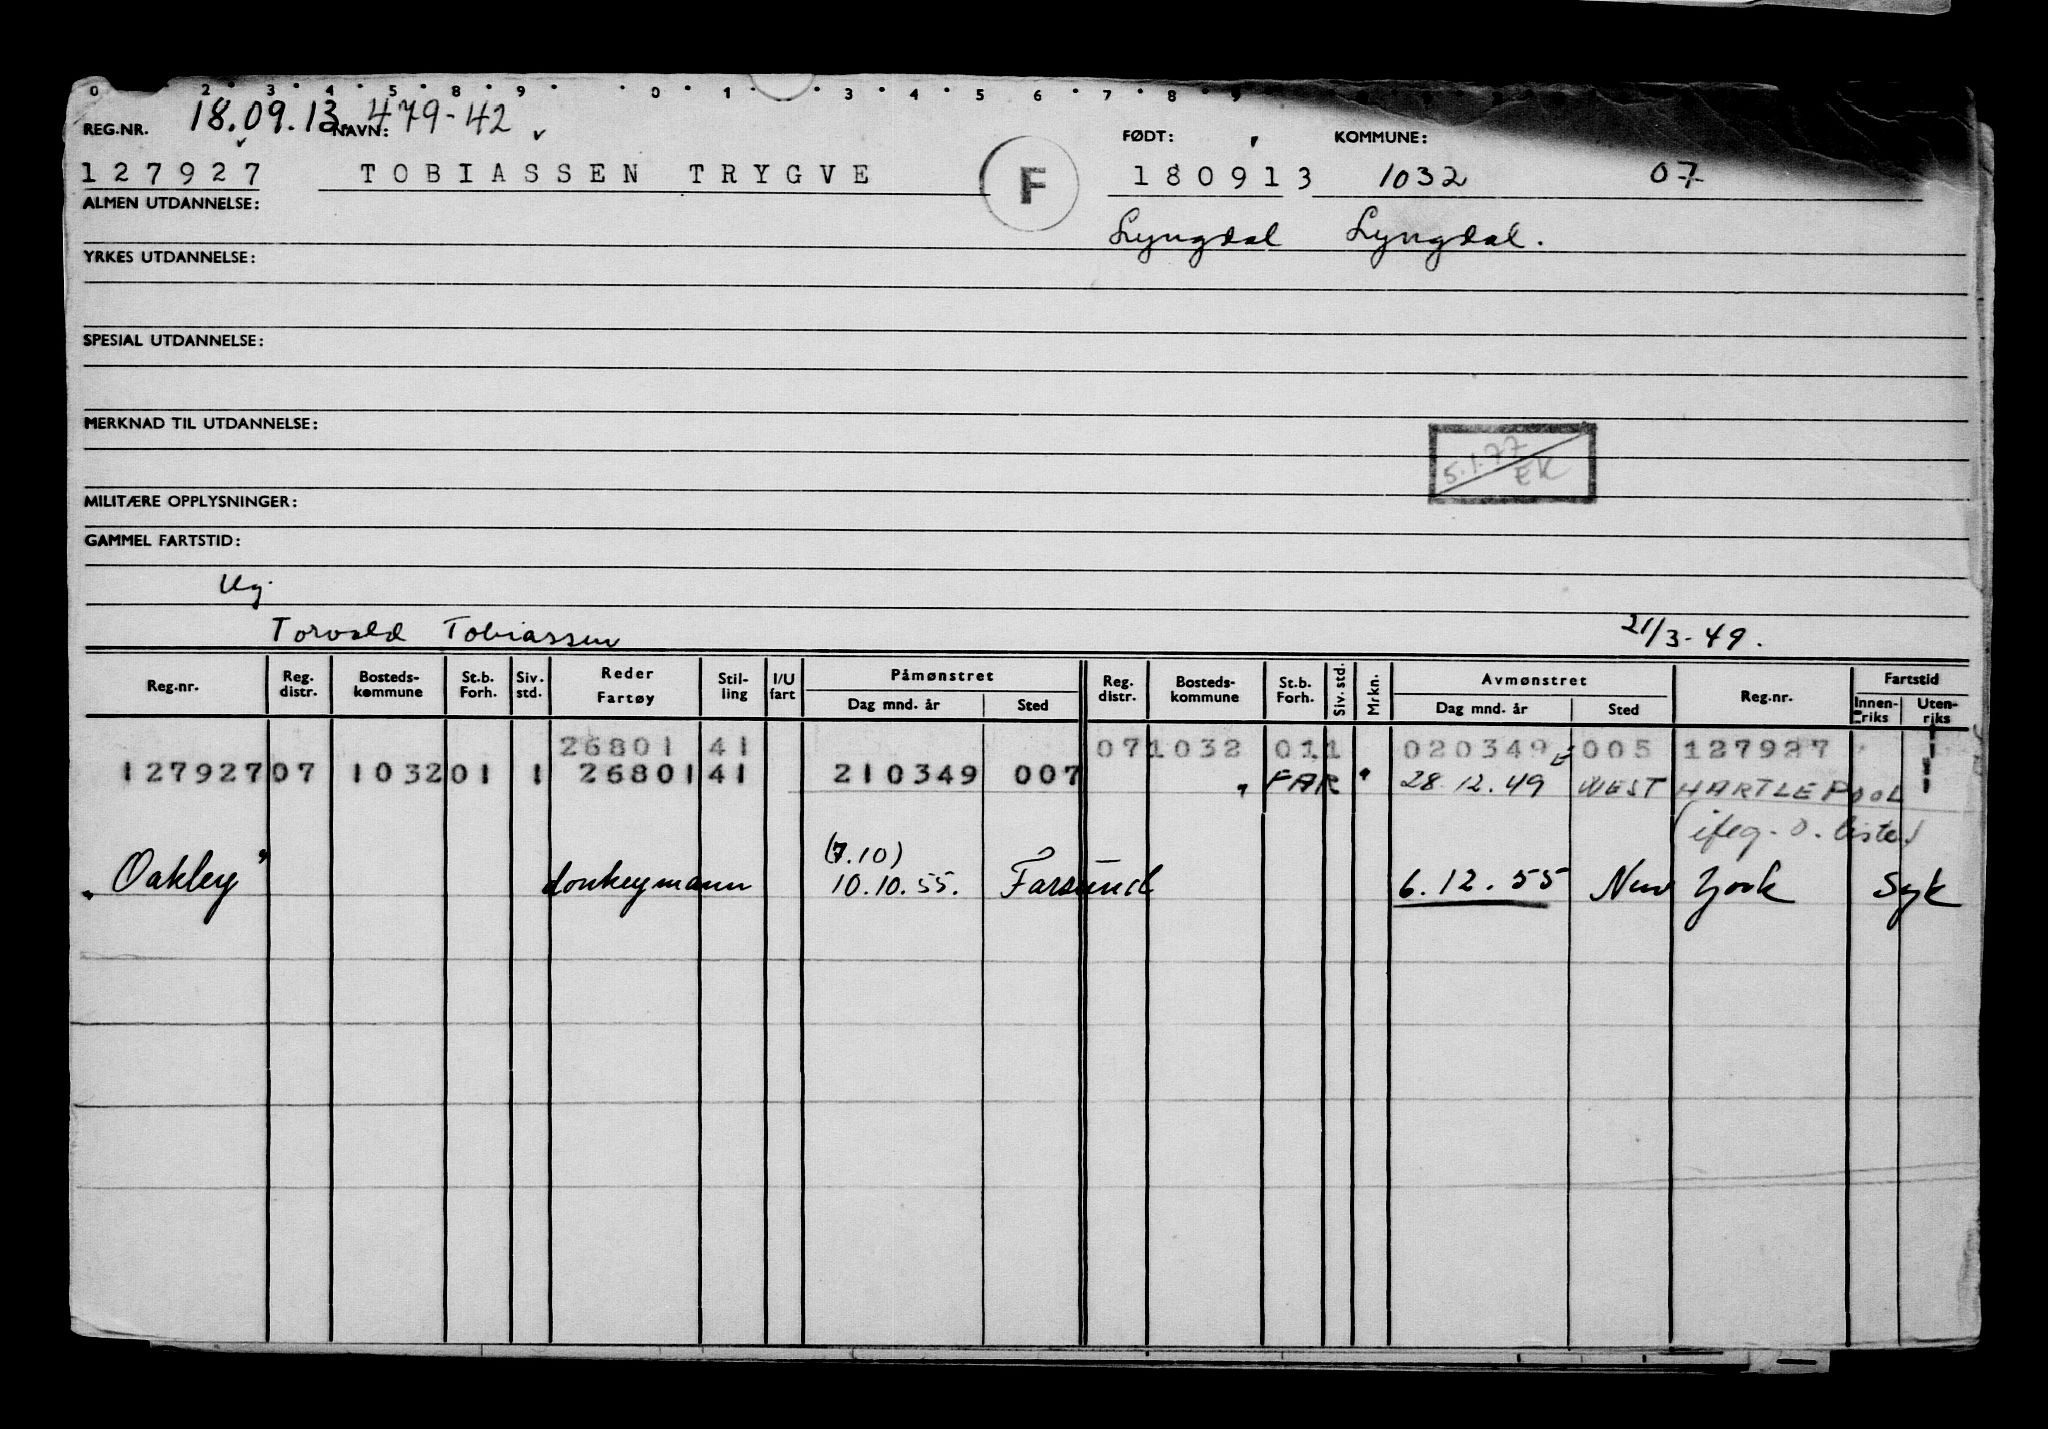 0 2 3 4 5 8 9 0 1 3 4 5 6 7 8 9
18.09.13. 479-42
REG.NR. NAVN: FØDT: KOMMUNE:
127927 TOBIASSEN TRYGVE F 180913 1032 07
ALMEN UTDANNELSE: Lyngdal Lyngdal.
YRKES UTDANNELSE:
SPESIAL UTDANNELSE:
MERKNAD TIL UTDANNELSE:
5.1.77 EK
MILITÆRE OPPLYSNINGER:
GAMMEL FARTSTID:
Ug
Torvald Tobiassen 21/3-49.
Reg.nr. Reg. distr. Bosteds-kommune St.b. Forh. Siv. std. Reder Fartøy Stil-ling I/U fart Påmønstret Dag mnd. år Sted Reg. distr. Bosteds-kommune St.b. Forh. Siv. std. Mrkn. Avmønstret Dag mnd. år Sted Reg.nr. Fartstid Innen-riks Uten-riks
26801 41 07 1032 01 1 020349 005 127927
127927 07 1032 01 1 26801 41 210349 007 "FAR" 28.12.49 WEST HARTLEPOOL
(iflg. o. liste)
(7.10)
"Oakley" donkeymann 10.10.55. Farsund 6.12.55 New York Syk